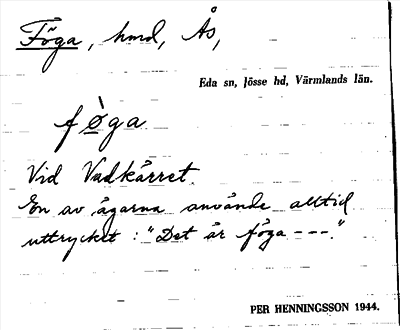 Föga, hmd, Ås,
Eda sn, Jösse hd, Värmlands län.
fø̀ga
Vid Vadkärret.
En av ägarna använde alltid
uttrycket: "Det är föga ---."
PER HENNINGSSON 1944.